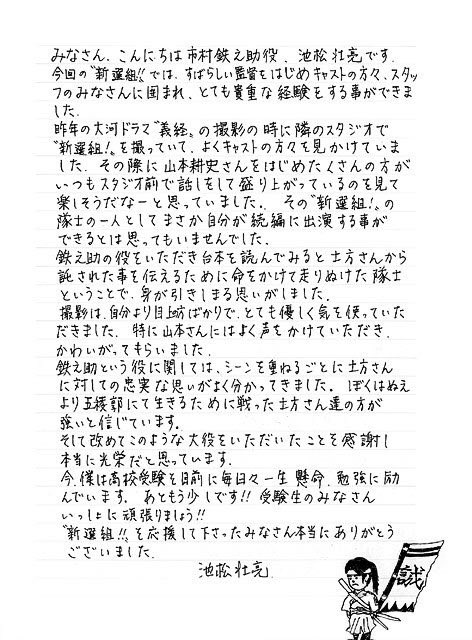 みなさん、こんにちは市村鉄之助役、池松壮亮です。
今回の"新選組!!"では、すばらしい監督をはじめキャストの方々、スタッ
フのみなさんに囲まれ、とても貴重な経験をする事ができま
した。
昨年の大河ドラマ"義経"の撮影の時に隣のスタジオで
"新選組!"を撮っていて、よくキャストの方々を見かけていま
した。その際に山本耕史さんをはじめたくさんの方が
いつもスタジオ前で話しをして盛り上がっているのを見て
楽しそうだなーと思っていました。その"新選組!"の
隊士の一人としてまさか自分が続編に出演する事が
できるとは思ってもいませんでした。
鉄之助の役をいただき台本を読んでみると土方さんから
託された事を伝えるために命をかけて走りぬけた隊士
ということで、身が引きしまる思いがしました。
撮影は、自分より目上方ばかりで、とても優しく気を使っていた
だきました。特に山本さんにはよく声をかけていただき、
かわいがってもらいました。
鉄之助という役に関しては、シーンを重ねるごとに土方さん
に対しての忠実な思いがよく分かってきました。ぼくはぬえ
より五稜郭にて生きるために戦った土方さん達の方が
強いと信じています。
そして改めてこのような大役をいただいたことを感謝し
本当に光栄だと思っています。
今、僕は高校受験を目前に毎日々一生懸命、勉強に励
んでいます。あともう少しです!!受験生のみなさん
いっしょに頑張りましょう!!
"新選組!!"を応援して下さったみなさん本当にありがとう
ございました。
池松壮亮
誠